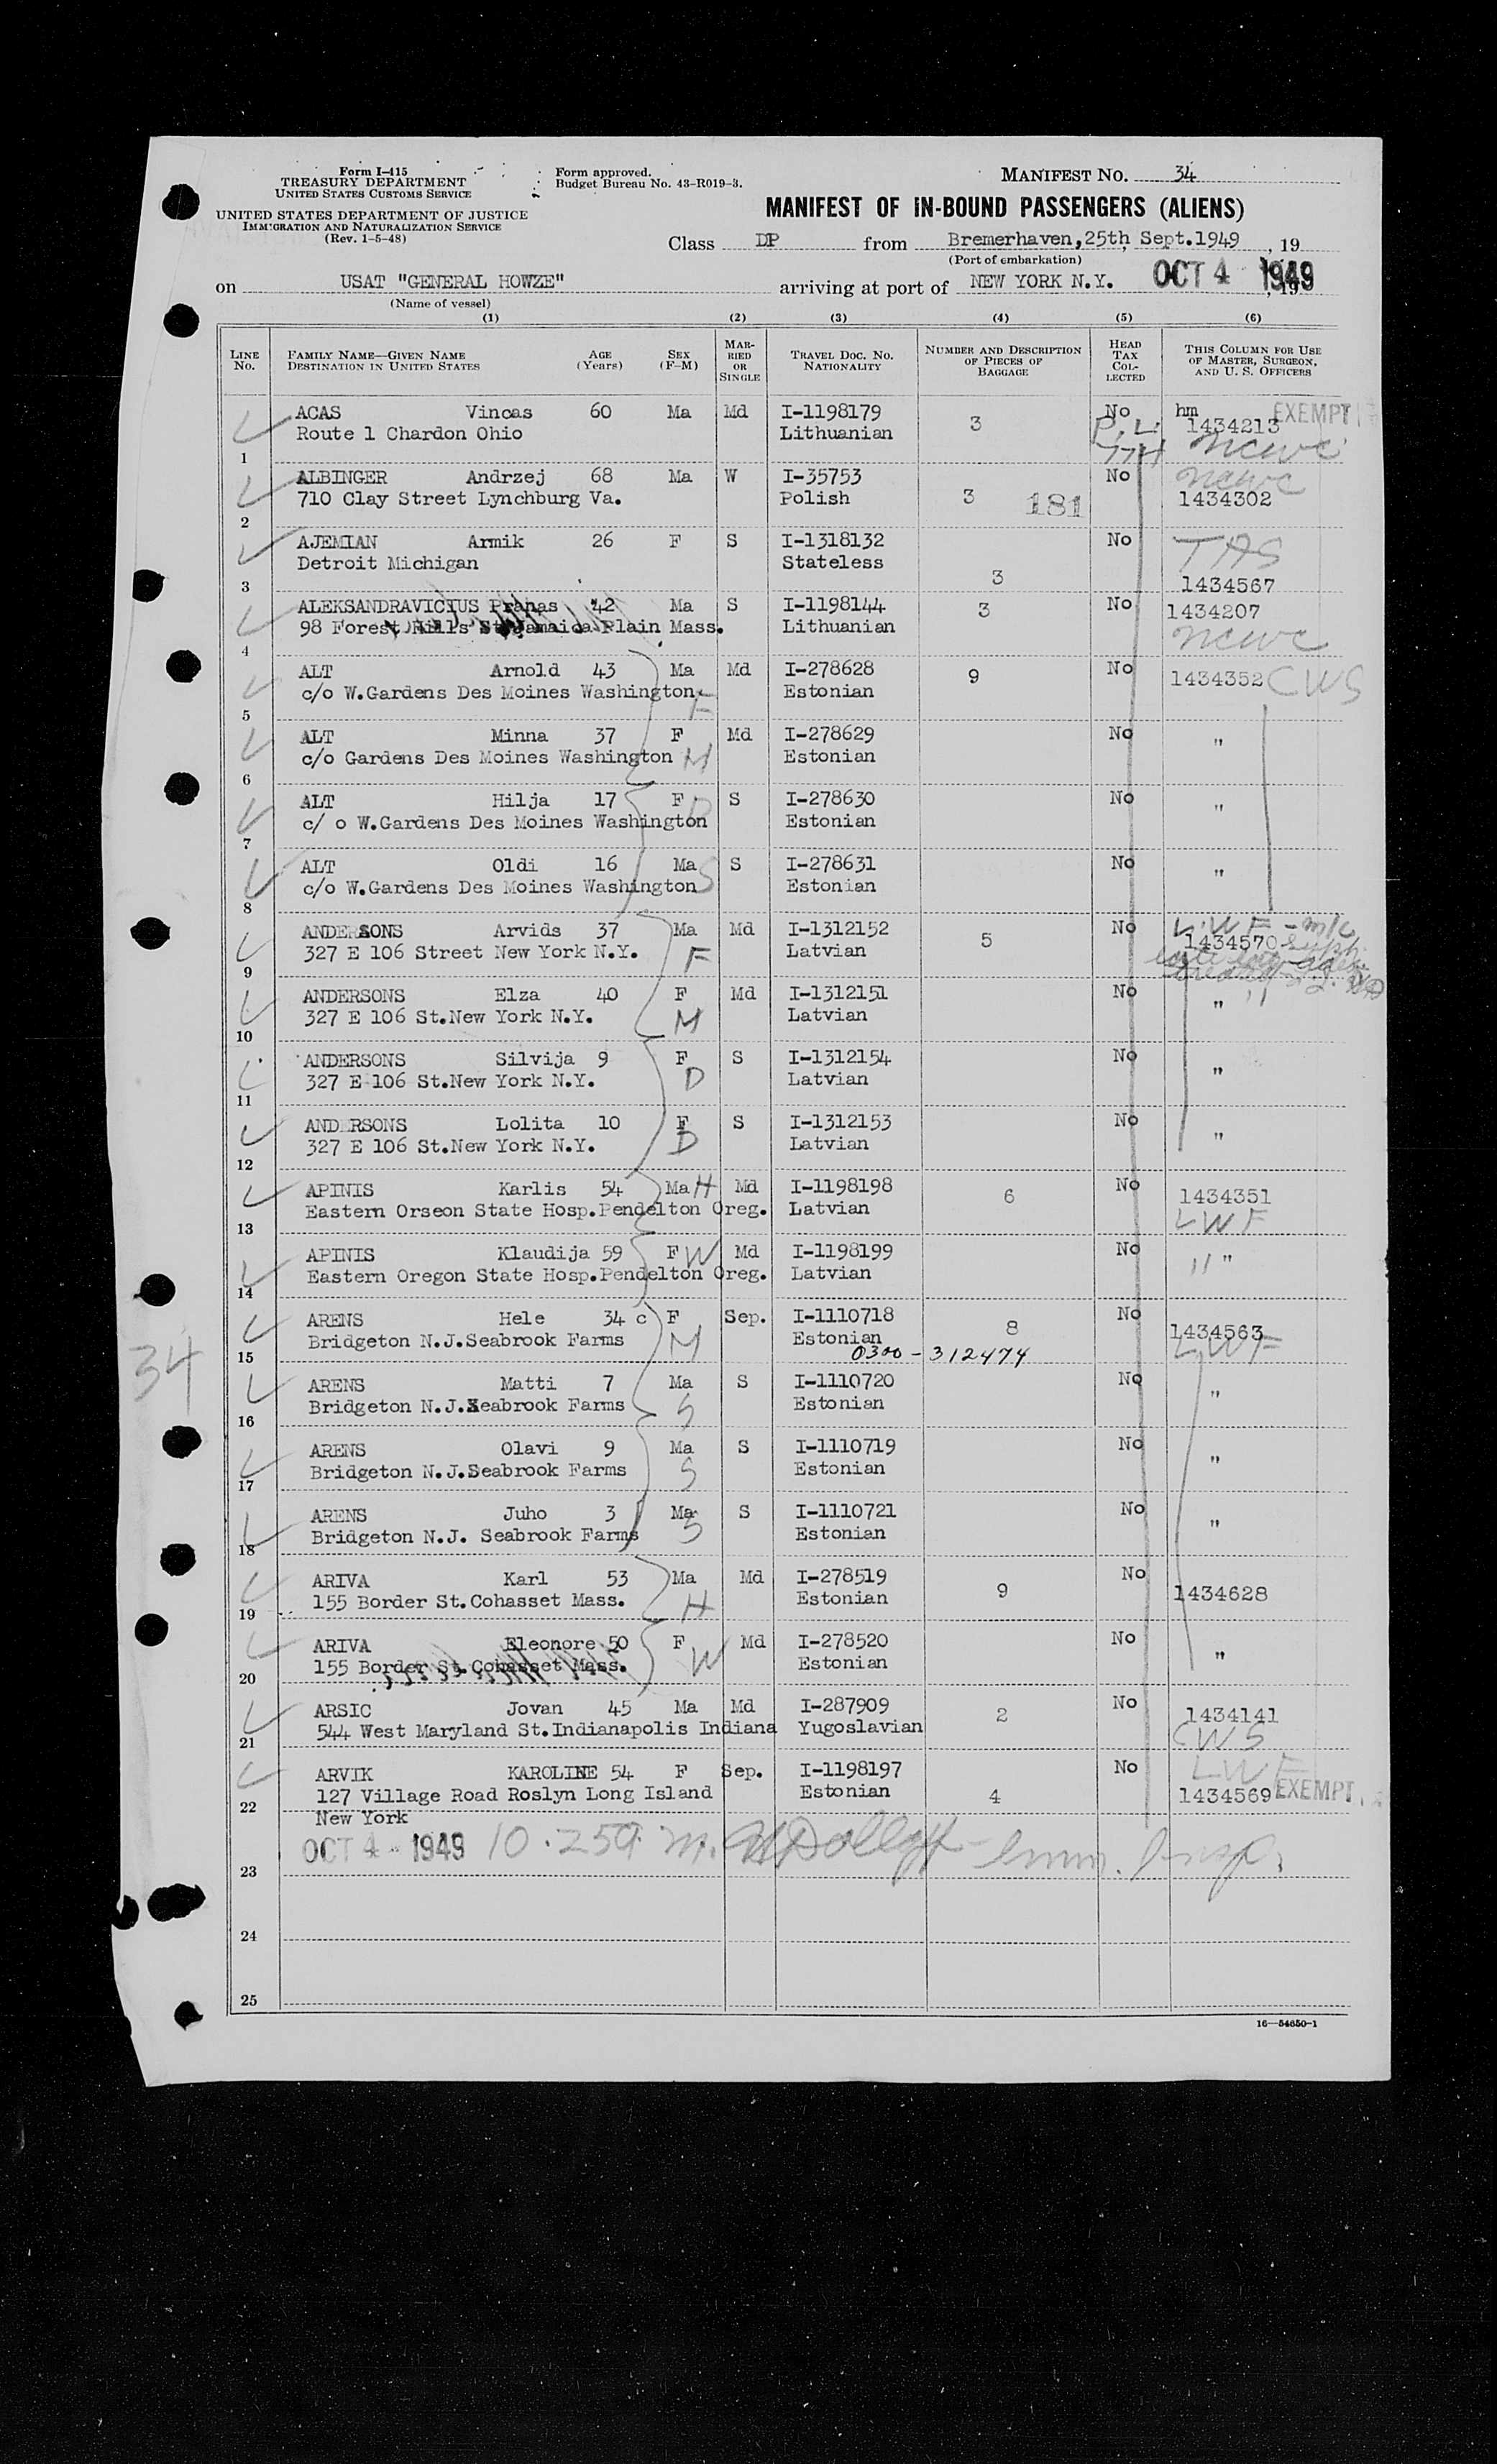 Form I-415
TREASURY DEPARTMENT
UNITED STATES CUSTOMS SERVICE
UNITED STATES DEPARTMENT OF JUSTICE
IMMIGRATION AND NATURALIZATION SERVICE
(Rev. 1-5-48)
Form approved.
Budget Bureau No. 43-R019-3.
MANIFEST NO. 34
MANIFEST OF IN-BOUND PASSENGERS (ALIENS)
Class DP from Bremerhaven,25th Sept.1949, 19
(Port of embarkation)
on USAT "GENERAL HOWZE" arriving at port of NEW YORK N.Y. OCT 4 1949, 19
(Name of vessel)
(1) (2) (3) (4) (5) (6)
LINE NO. FAMILY NAME—GIVEN NAME DESTINATION IN UNITED STATES AGE (Years) SEX (F-M) MARRIED OR SINGLE TRAVEL DOC. NO. NATIONALITY NUMBER AND DESCRIPTION OF PIECES OF BAGGAGE HEAD TAX COLLECTED THIS COLUMN FOR USE OF MASTER, SURGEON, AND U. S. OFFICERS
ACAS Vincas 60 Ma Md I-1198179 3 No hm 1434213 EXEMPT
Route 1 Chardon Ohio Lithuanian ncwc
1
ALBINGER Andrzej 68 Ma W I-35753 3 181 No ncwc
710 Clay Street Lynchburg Va. Polish 1434302
2
AJEMIAN Armik 26 F S I-1318132 3 No TAS
Detroit Michigan Stateless 1434567
3
ALEKSANDRAVICIUS Pranas 42 Ma S I-1198144 3 No 1434207
98 Forest Hills St Jamaica Plain Mass. Lithuanian ncwc
4
ALT Arnold 43 Ma Md I-278628 9 No 1434352 CWS
c/o W.Gardens Des Moines Washington F Estonian
5
ALT Minna 37 F Md I-278629 No "
c/o Gardens Des Moines Washington M Estonian
6
ALT Hilja 17 F D S I-278630 No "
c/ o W.Gardens Des Moines Washington Estonian
7
ALT Oldi 16 Ma S S I-278631 No "
c/o W.Gardens Des Moines Washington Estonian
8
ANDERSONS Arvids 37 Ma Md I-1312152 5 No LWF - m/c
327 E 106 Street New York N.Y. F Latvian 1434570
9
ANDERSONS Elza 40 F Md I-1312151 No "
327 E 106 St.New York N.Y. M Latvian
10
ANDERSONS Silvija 9 F S I-1312154 No "
327 E 106 St.New York N.Y. D Latvian
11
AND RSONS Lolita 10 F S I-1312153 No "
327 E 106 St.New York N.Y. D Latvian
12
APINIS Karlis 54 Ma H Md I-1198198 6 No 1434351
Eastern Orseon State Hosp.Pendelton Oreg. Latvian LWF
13
APINIS Klaudija 59 F W Md I-1198199 No " "
Eastern Oregon State Hosp.Pendelton Oreg. Latvian
14
ARENS Hele 34 c F Sep. I-1110718 8 No 1434563
Bridgeton N.J.Seabrook Farms M Estonian LWF
15 0300-312474
ARENS Matti 7 Ma S I-1110720 No "
Bridgeton N.J.Seabrook Farms S Estonian
16
ARENS Olavi 9 Ma S I-1110719 No "
Bridgeton N.J.Seabrook Farms S Estonian
17
ARENS Juho 3 Ma S I-1110721 No "
Bridgeton N.J. Seabrook Farms S Estonian
18
ARIVA Karl 53 Ma Md I-278519 9 No 1434628
155 Border St.Cohasset Mass. H Estonian
19
ARIVA Eleonore 50 F Md I-278520 No "
155 Border St.Cohasset Mass. W Estonian
20
ARSIC Jovan 45 Ma Md I-287909 2 No 1434141
544 West Maryland St.Indianapolis Indiana Yugoslavian CWS
21
ARVIK KAROLINE 54 F Sep. I-1198197 4 No LWF
127 Village Road Roslyn Long Island Estonian 1434569 EXEMPT
22
New York
OCT 4 - 1949 10.25 Imm. Insp.
23
24
25
34
16—54650-1